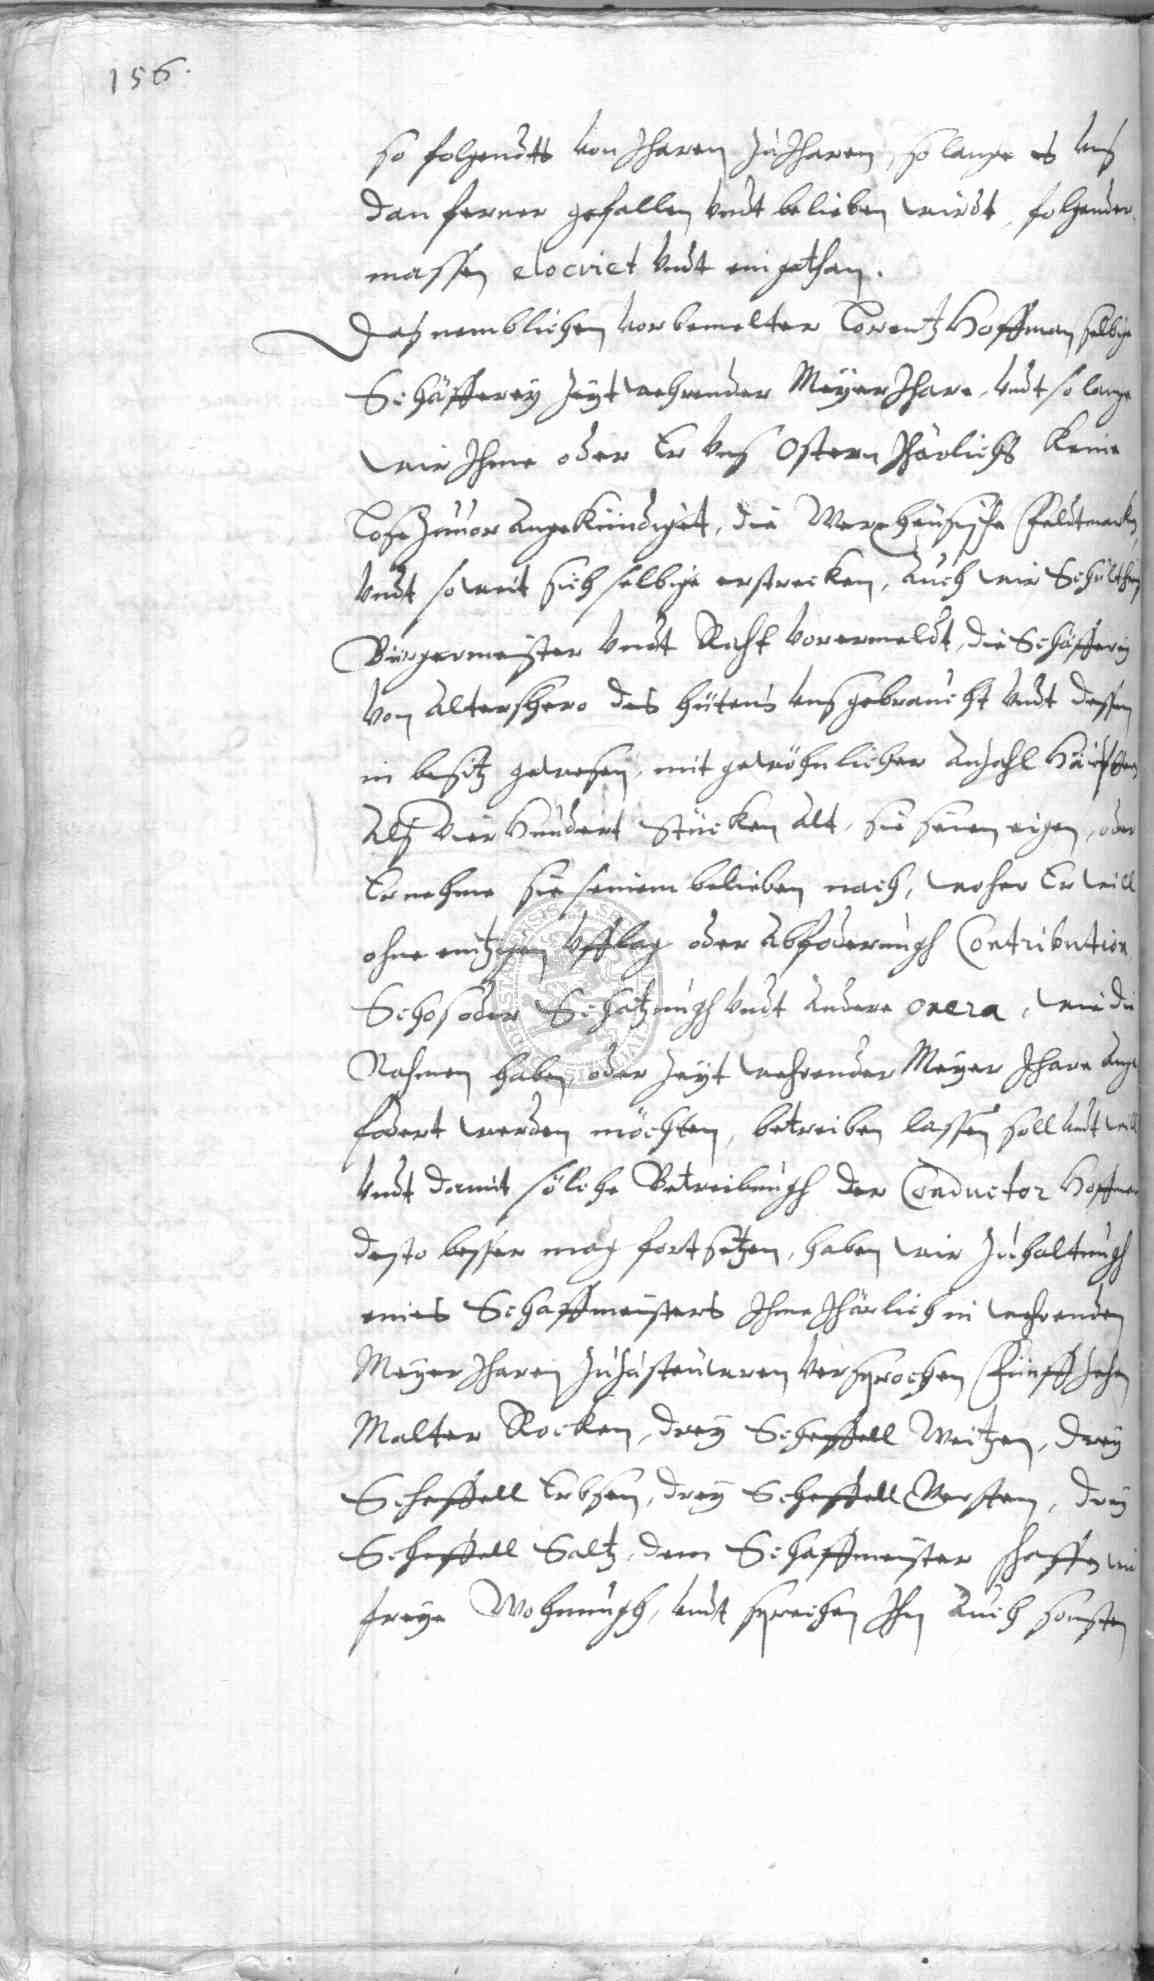 156.
so folgendts von Jharen zu Jharen, so lange es unß
dan ferner gefallen undt belieben wirdt, folgender
massen elociret undt eingethan.
Daß nemblichen vorbemelter Lorentz Hoffman selbige
Schäfferey zeyt wehrender Meyer Jhare, undt so lange
wir Jhme oder Er unß Ostern Jhärlichs keine
Lose zuuor angekündiget, die Feldtmarck,
undt so weit sich selbige erstrecken, auch wir Schulthes
Bürgermeister undt Raht vorermeldt, die Schäfferey
von altershero des hütens unß gebraucht undt dessen
in besitz gewesen, mit gewöhnlicher Anzahl
Alß vier hundert stücken alt, sie seien eigen, oder
Er nehme sie seinem belieben nach, woher Er will
ohne eintzigen Ufflag oder abfoderungh Contribution
Schos oder Schatzungh undt andere onera, wie die
Nahmen haben, oder zeyt wehrender Meyer Jhare ange
fodert werden möchten, betreiben lassen soll undt will
undt damit solche Betreibungh der Conductor Hoffman
desto besser mag fortsetzen, haben wir zu haltungh
eines Schaffmeisters Jhme Jhärlich in wehrenden
Meyer Jharen zu zusteuwren versprochen Fünffzehn
Malter Rocken, drey Scheffell Weitzen, drey
Scheffell Erbsen, drey Scheffell Gersten, drey
Scheffell Saltz, dem Schaffmeister schaffen wir
freye Wohnungh, undt sprechen Jhn auch sonsten